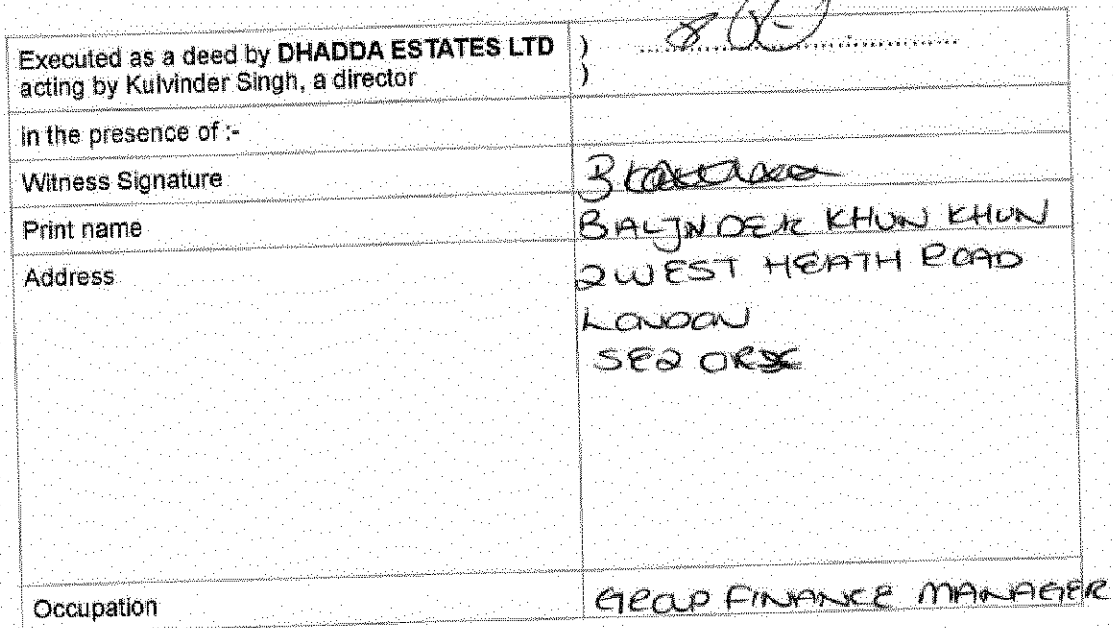 Executed as a deed by DHADDA ESTATES LTD )
acting by Kulvinder Singh, a director )
in the presence of :-
Witness Signature
Print name BALJNDER KHUN KHUN
Address 2 WEST HEATH ROAD
LONDON
SE2
Occupation GROUP FINANCE MANAGER